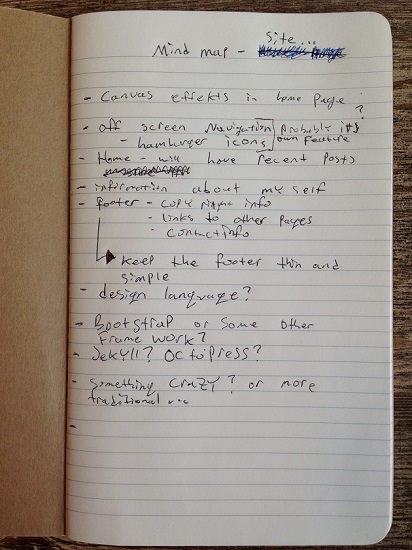 Mind map - Site...
- Canvas effects in home page?
- off screen Navigation probably its own feature
- hamburger icons
- Home will have recent posts
- information about my self
- footer - copyright info
- links to other pages
- contact info
keep the footer thin and
simple
- design language?
- Bootstrap or some other
Frame work?
- Jekyll? Octopress?
- Something crazy? or more
traditional